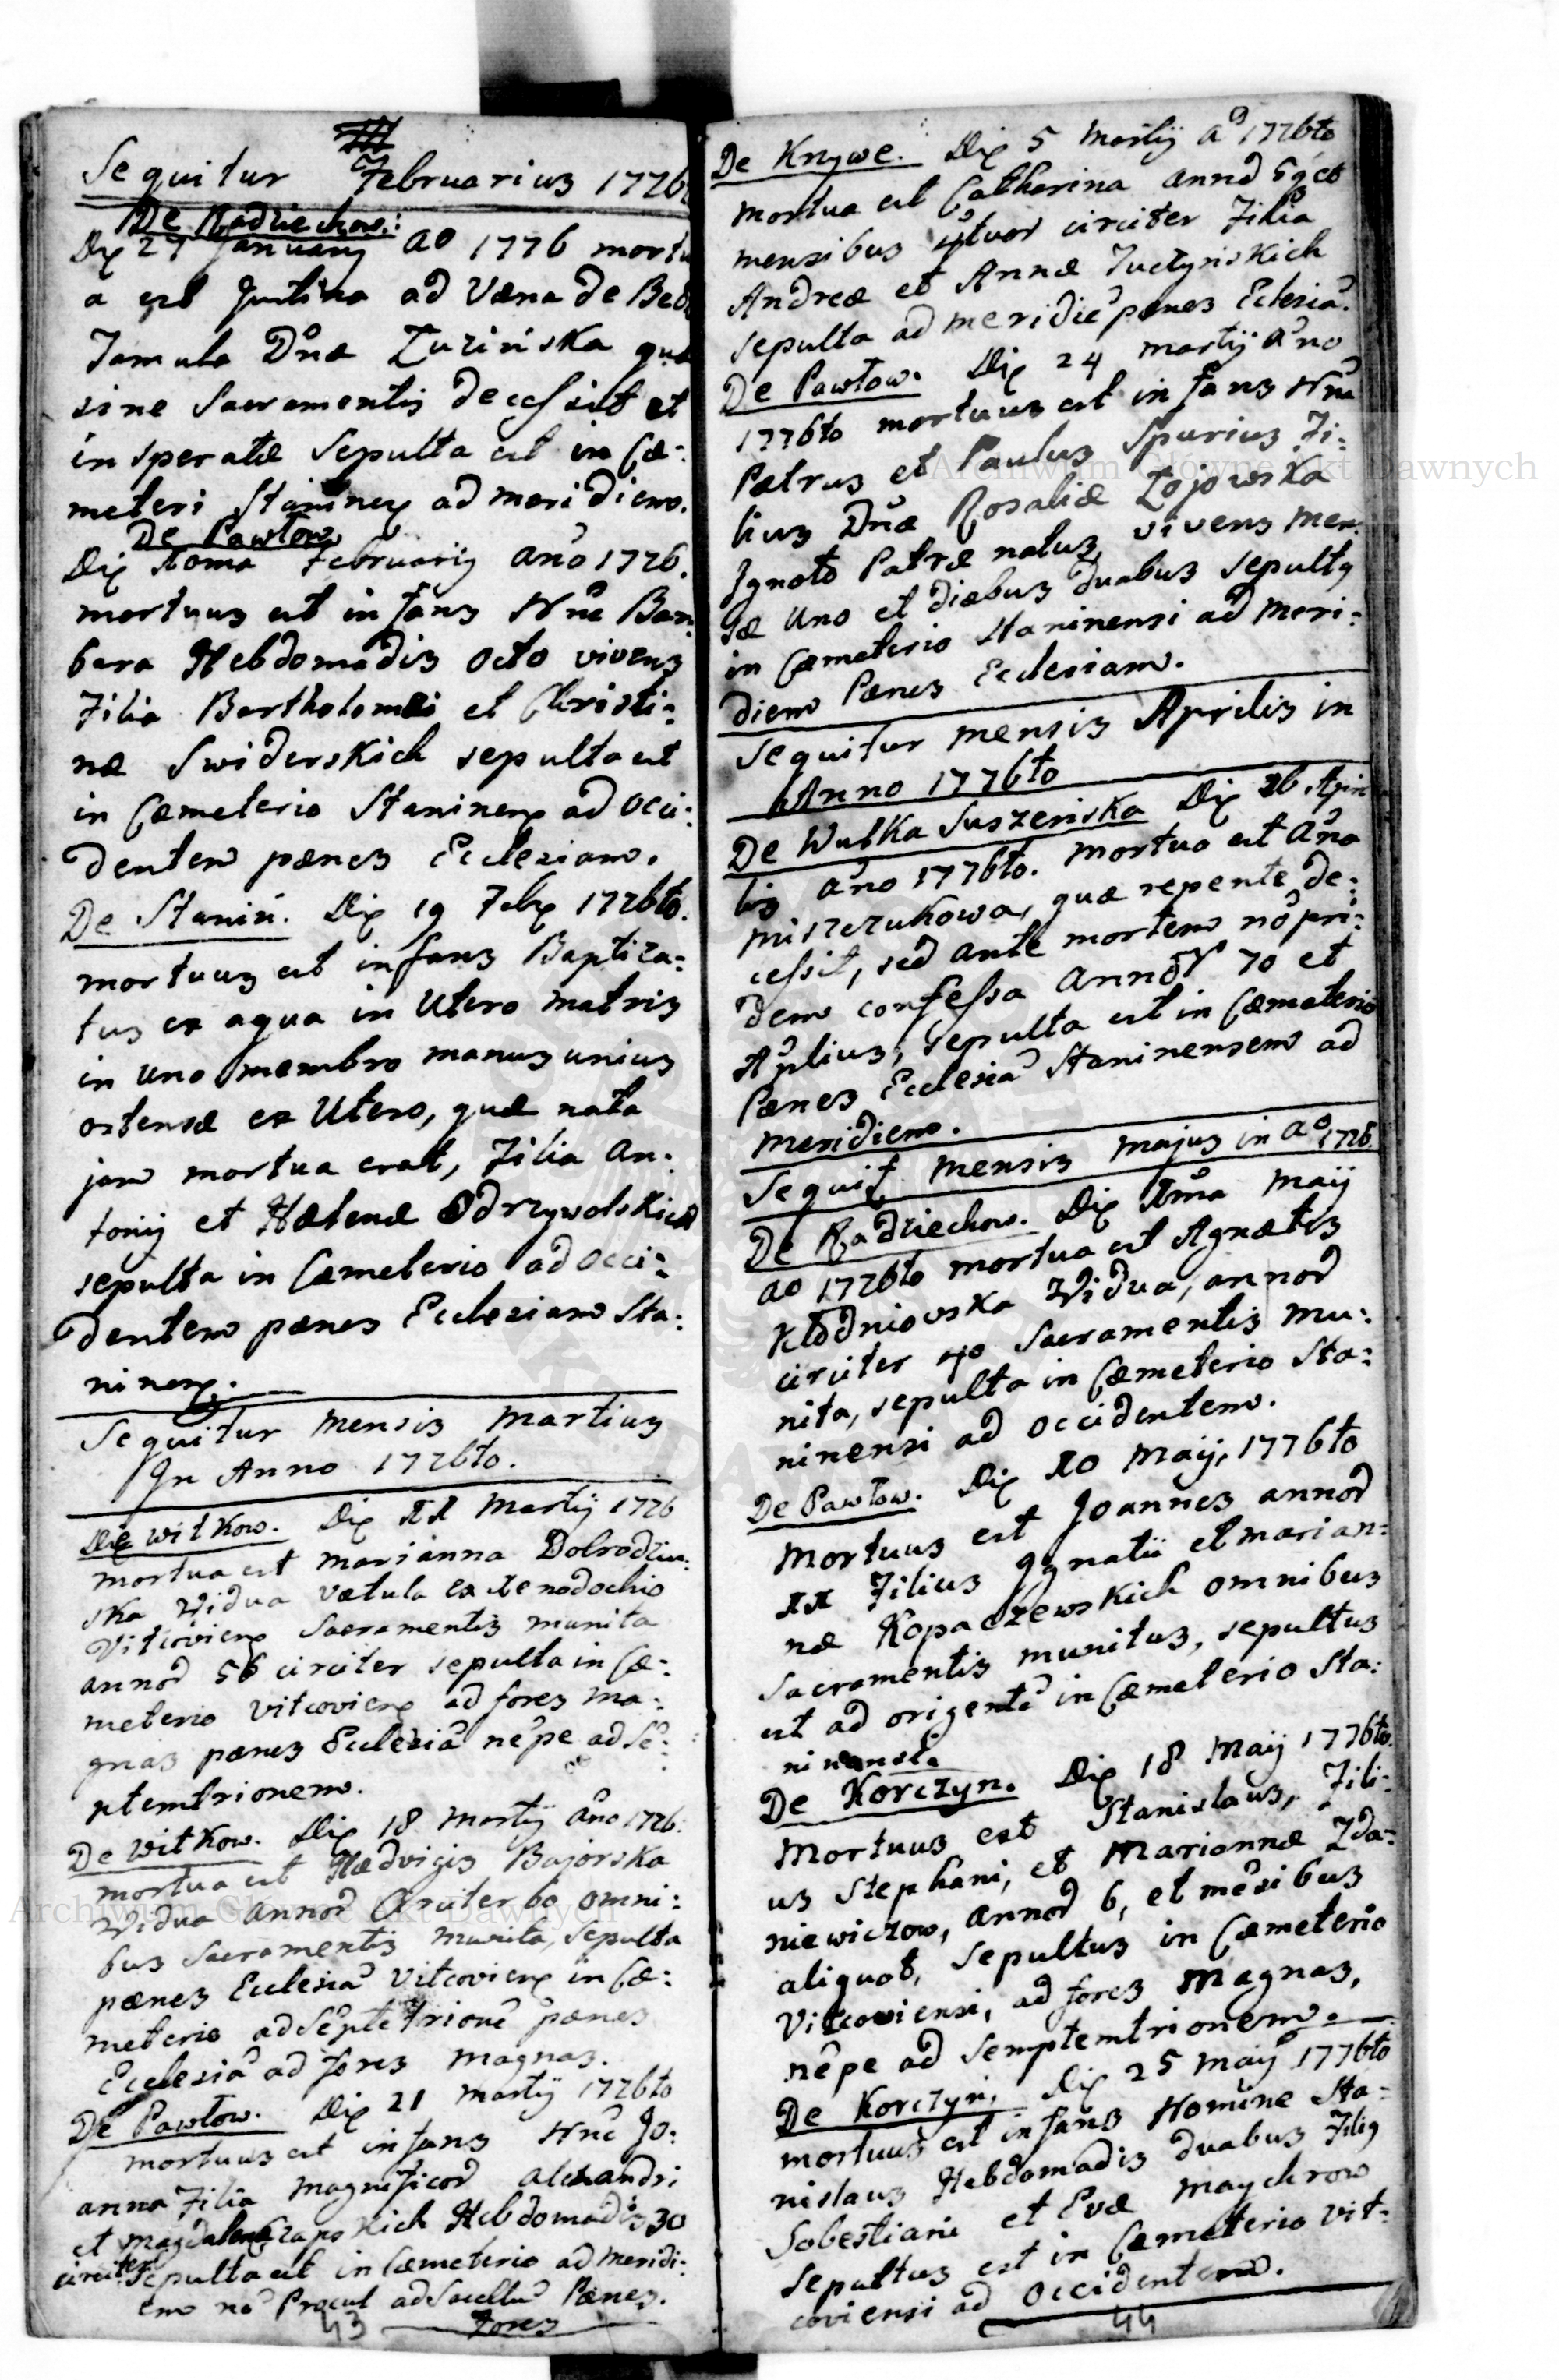 Sequitur Februarius 1776
De Radziechow:
Die 27 January Ao 1776 mortu
a est Justina ad Væna de Bed
Famula Dnæ Zuzińska quæ
sine Sacramentis decessit et
insperatæ Sepulta est in Cæ-
meteri Staninen ad meridiem.
De Pawłow
Die 1oma February Ano 1776.
mortuus est infans Nne Bar
bara Hebdomadis octo vivens
Filia Bartholomæi et Christi:
næ Swiderskich sepulta est
in Cæmeterio Staninen ad occi:
dentem pænes Ecclesiam.
De Stanin. Die 19 Febr 1776to.
mortuus est infans Baptiza:
tus ex aqua in Utero matris
in uno membro manus unius
ostensæ ex Utero, quæ nata
jam mortua erat, Filia An:
tonij et Hælenæ Odrzywolskich
sepulta in Cæmeterio ad occi:
dentem pænes Ecclesiam Sta:
ninen.
Sequitur Mensis Martius
In Anno 1776to.
De Witkow. Die 11 Martij 1776
mortua est Marianna Dobrodziu:
ska Vidua vætula ex Xenodochio
Vitcovien Sacramentis munita
annor 56 circiter sepulta in Cæ:
meterio Vitcovien ad fores ma:
gnas pænes Ecclesia nepe ad Se:
ptemtrionem.
De Witkow. Die 18 Martij Ano 1776.
mortua est Hædvigis Bajorska
Vidua annor Circiter 60 omni:
bus Sacramentis munita, Sepulta
pænes Ecclesia Vitcovien in Cæ:
meterio ad Septetrione pænes
Ecclesia ad fores magnas.
De Pawłow. Die 21 Martij 1776to
mortuus est infans Nne Jo:
anna Filia Magnificor Alexandri
et Magdalenæ Czapskich Hebdomadis 30
circiter Sepulta est in Cæmeterio ad meridi:
em no Procul ad Sacellu Pænes.
fores
43
De Krzywe. Die 5 Martij Ao 1776to
mortua est Catherina annor 5 et
mensibus qtuor circiter Filia
Andreæ et Annæ Juctyńskich
sepulta ad meridie pænes Eclesia.
De Pawłow. Die 24 Martij Ano
1776to mortuus est infans Nne
Pætrus et Paulus Spurius Fi:
lius Dnæ Rosaliæ Zojowska
Ignoto Patræ natus, vivens men
sæ Uno et diæbus duabus sepultg
in Cæmeterio Staninensi ad meri:
diem Pænes Ecclesiam.
Sequitur mensis Aprilis in
Anno 1776to
De Wulka Suszeńska Die 26 Apri
lis Ano 1776to. mortua est Ana
Miszczukowa, quæ repente de:
cessit, sed ante mortem no pri:
dem confessa Annor 70 et
Aplius, sepulta est in Cæmeterio
Pænes Ecclesia Staninensem ad
meridiem.
Sequit mensis Majus in Ao 1776.
De Radziechow. Die 1ma Maij
ao 1776to mortua est Agnætis
Kłodniowska Vidua, annor
circiter 40 Sacramentis mu:
nita, sepulta in Cæmeterio Sta:
ninensi ad occidentem.
De Pawłow. Die 10 Maij, 1776to
Mortuus est Joannes annor
11 Filius Ignatii et Marian:
næ Kopaczewskich omnibus
Sacramentis munitus, sepultus
est ad origente in Cæmeterio Sta:
ninensi.
De Korczyn. Die 18 Maij 1776to.
Mortuus est Stanislaus, Fili:
us Stephani, et Mariannæ Zda:
niewiczow, annor 6, et mesibus
aliquot, Sepultus in Cæmeterio
Vitcoviensi, ad fores Magnas,
nepe ad Semptemtrionem.
De Korczyn. Die 25 Maij 1776to
mortuus est infans Nomine Sta:
nislaus Hebdomadis duabus Filig
Sobestiani et Evæ Maychrow
Sepultus est in Cæmeterio Vit:
coviensi ad Occidentem.
44
Archiwum Główne Akt Dawnych
Archiwum Główne Akt Dawnych